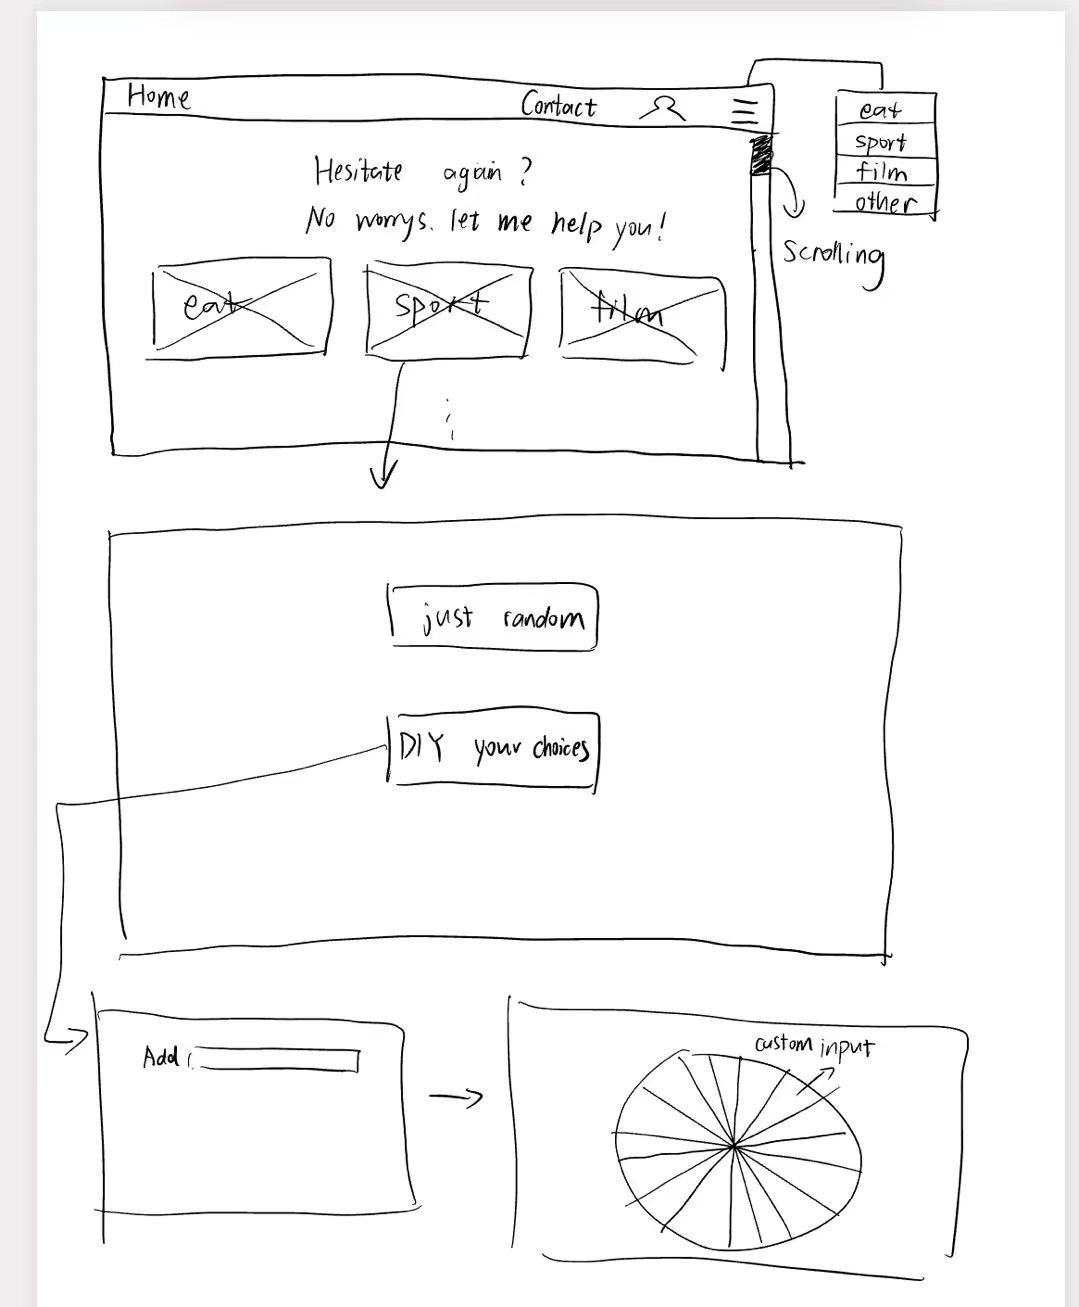 Home Contact
eat
sport
film
other
Hesitate again ?
No worrys. let me help you!
scrolling
eat sport film
just random
DIY your choices
Add :
custom input